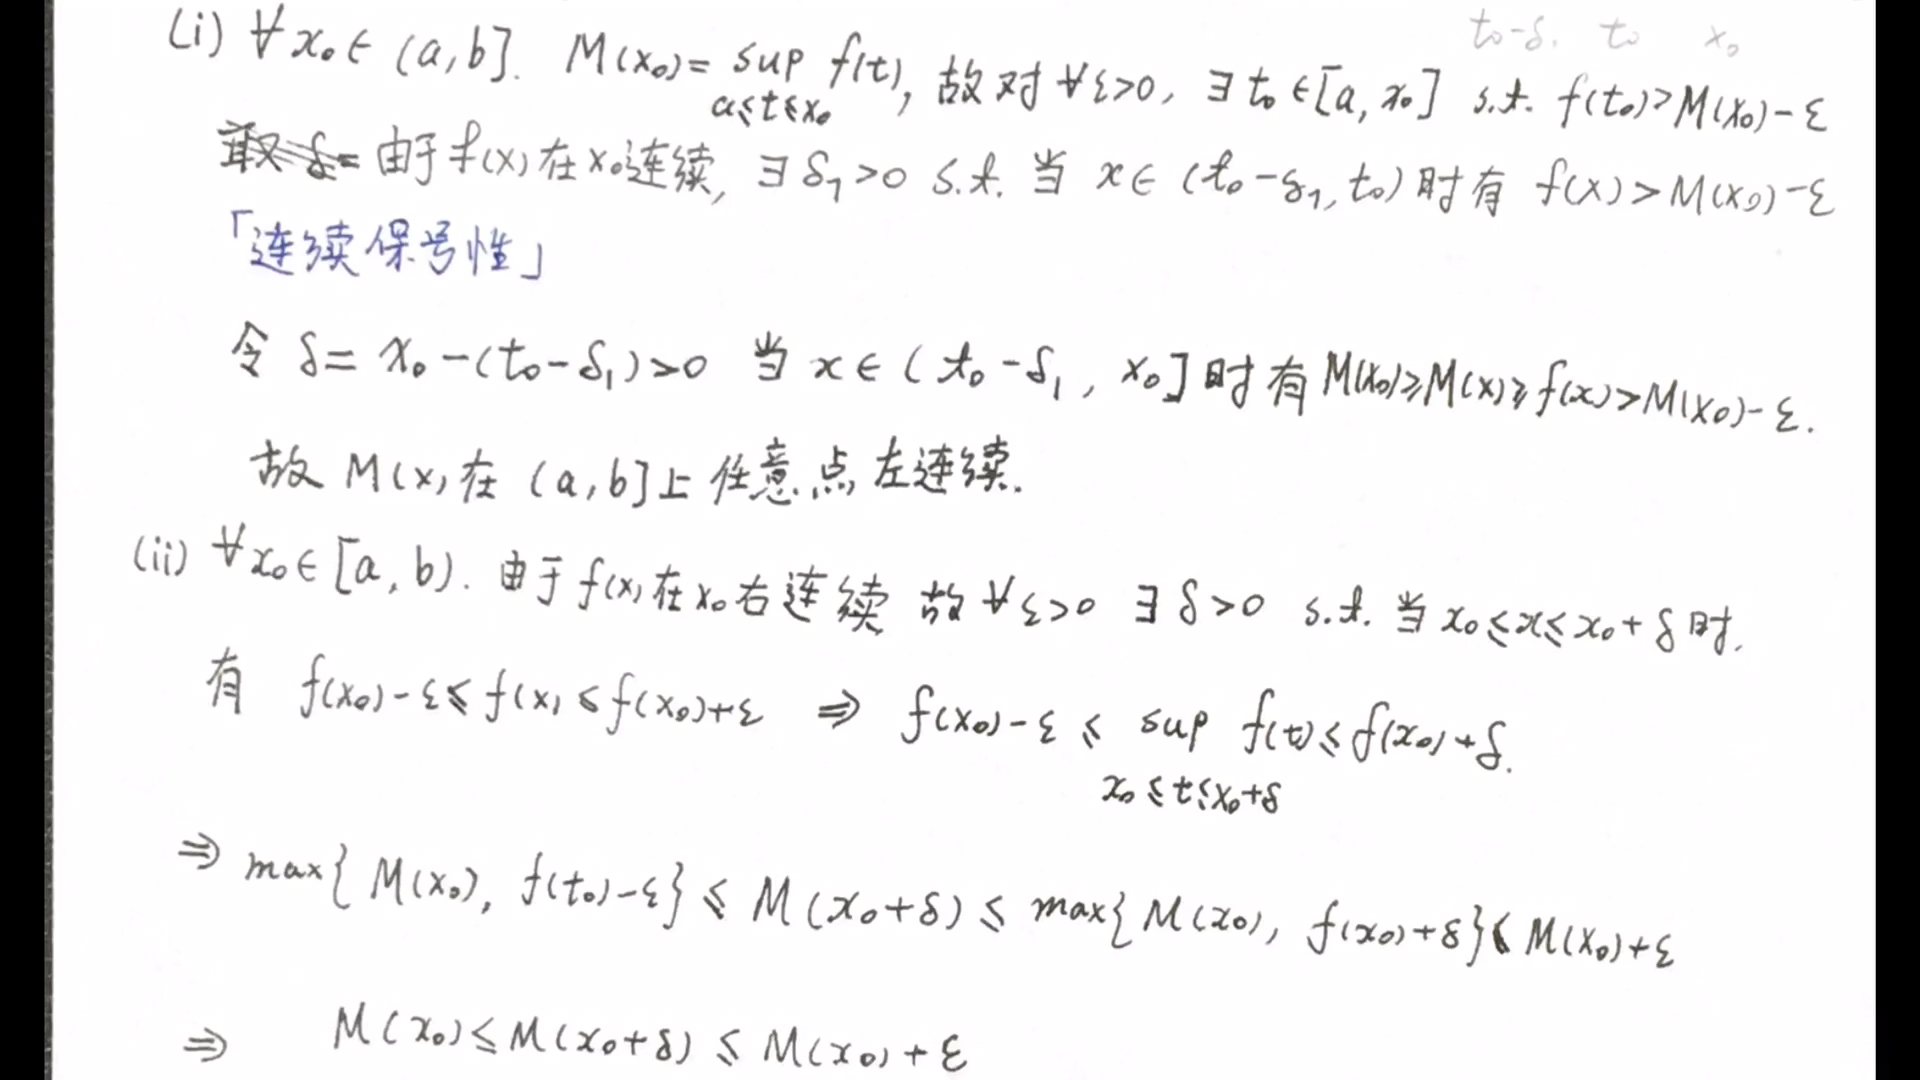 t₀-δ. t₀ x₀
(i) ∀x₀∈(a,b]. M(x₀)= sup f(t), 故对∀ε>0, ∃t₀∈[a,x₀] s.t. f(t₀)>M(x₀)-ε
a≤t≤x₀
取δ= 由于f(x)在x₀连续, ∃δ₁>0 s.t. 当 x∈(t₀-δ₁,t₀)时有 f(x)>M(x₀)-ε
「连续保号性」
令 δ= x₀-(t₀-δ₁)>0 当 x∈(t₀-δ₁, x₀]时有M(x₀)≥M(x)≥f(x)>M(x₀)-ε.
故 M(x)在 (a,b]上任意点左连续.
(ii) ∀x₀∈[a,b). 由于f(x)在x₀右连续 故∀ε>0 ∃δ>0 s.t. 当 x₀≤x≤x₀+δ时.
有 f(x₀)-ε≤f(x)≤f(x₀)+ε ⇒ f(x₀)-ε≤ sup f(t)≤f(x₀)+δ.
x₀≤t≤x₀+δ
⇒ max{M(x₀), f(t₀)-ε}≤M(x₀+δ)≤max{M(x₀), f(x₀)+δ}≤M(x₀)+ε
⇒ M(x₀)≤M(x₀+δ)≤M(x₀)+ε